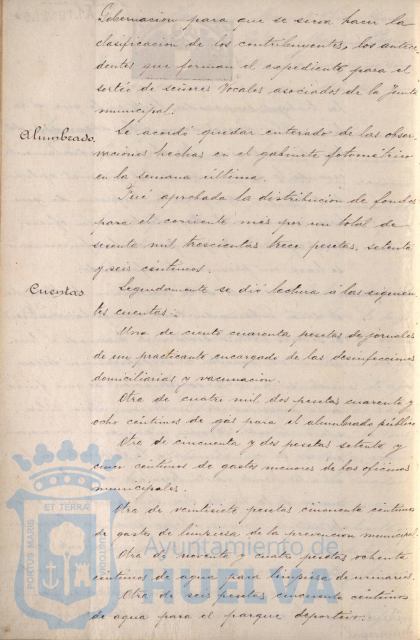 Gobernación para que se sirva hacer la
clasificación de los contribuyentes, los antece-
dentes que forman el expediente para el
sorteo de señores Vocales asociados de la Junta
municipal.
Alumbrado. Se acordó quedar enterado de las obser-
vaciones hechas en el gabinete fotométrico
en la semana última.
Fué aprobada la distribución de fondos
para el corriente mes por un total de
sesenta mil trescientas trece pesetas, setenta
y seis céntimos.
Cuentas Segundamente se dió lectura á las siguien-
tes cuentas:
Una de ciento cuarenta pesetas de jornales
de un practicante encargado de las desinfecciones
domiciliarias y vacunación.
Otra de cuatro mil dos pesetas cuarenta y
ocho céntimos de gas para el alumbrado público
Otra de cincuenta y dos pesetas setenta y
cinco céntimos de gastos menores de las oficinas
municipales.
Otra de veintisiete pesetas cincuenta céntimos
de gastos de limpieza de la prevención municipal.
Otra de noventa y cuatro pesetas ochenta
céntimos de agua para limpieza de urinarios.
Otra de seis pesetas cincuenta céntimos
de agua para el parque deportivo.
PORTUS MARIS
ET TERRAE
CUSTODIA
Ayuntamiento de
HUELVA